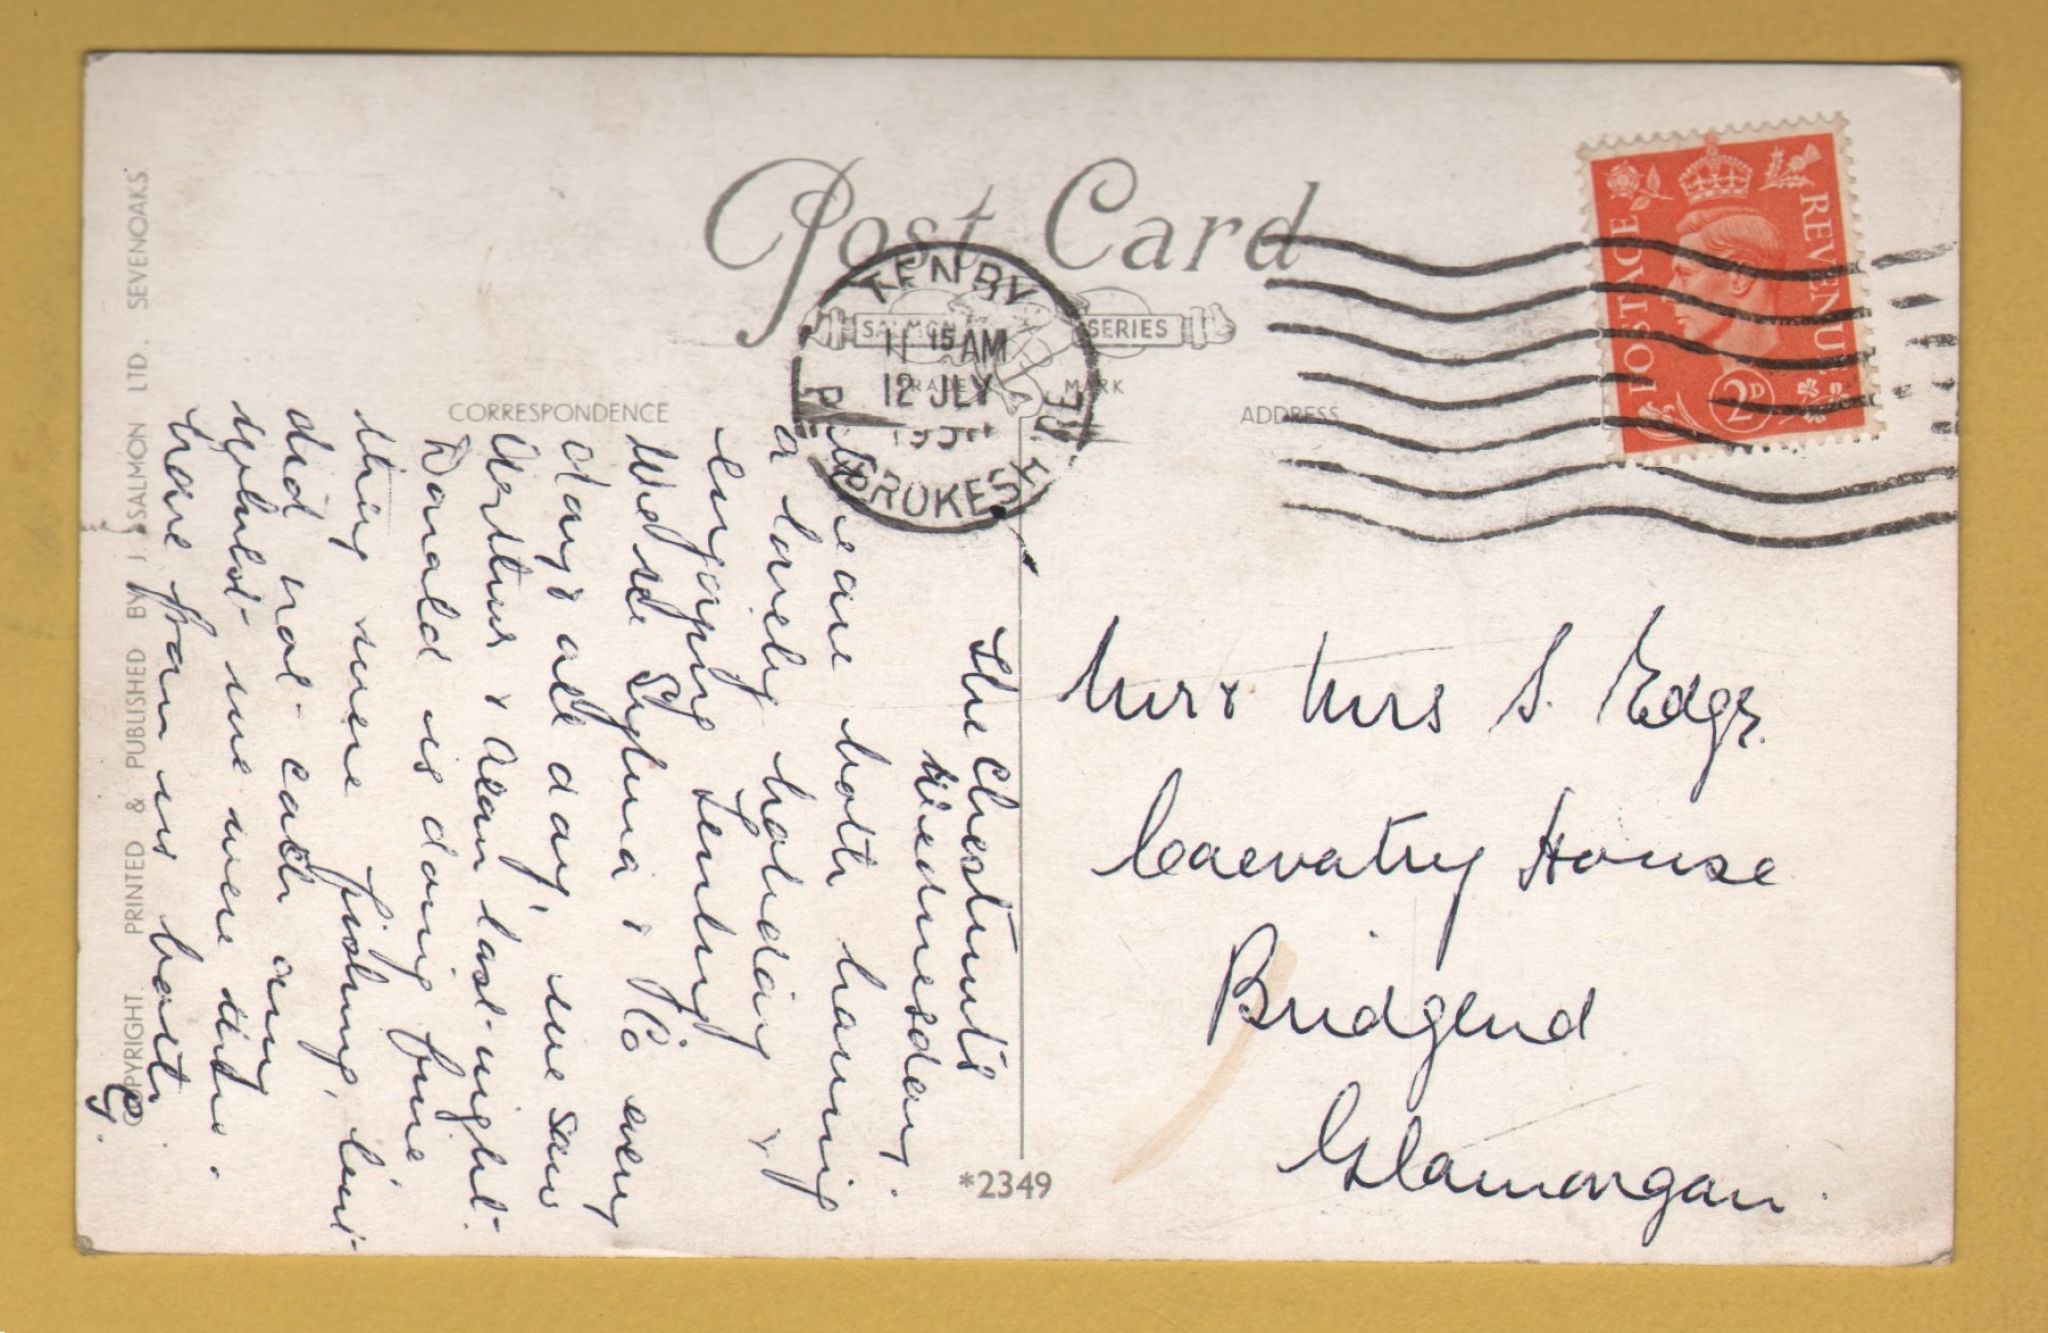 Post Card
SALMON SERIES
TRADE MARK
CORRESPONDENCE
ADDRESS
TENBY
11 15 AM
12 JLY
PEMBROKESHIRE
POSTAGE REVENUE
2D
The Chestnuts
Wednesday.
We are both having
a lovely holiday &
enjoying Tenby
We see Sylvia & Co every
day & all day, we saw
Arthur & Alan last night.
Donald is doing fine
thing were fishing, but
did not catch any
whilst we were there.
Love from us both
G.
Mr & Mrs S. Edgs.
Caevatry House
Bridgend
Glamorgan.
*2349
© COPYRIGHT. PRINTED & PUBLISHED BY J. SALMON LTD. SEVENOAKS